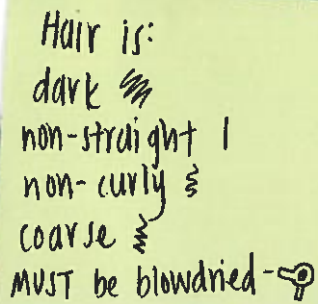 Hair is:
dark
non-straight
non-curly
coarse
MUST be blowdried -